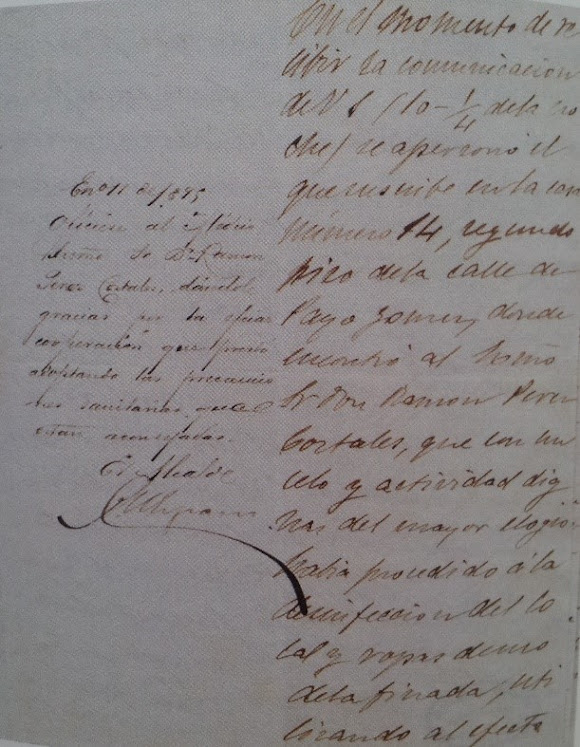 Enº 11 de 1895
Oficiese al Médico
dueño Sr. Dn. Ramon
Perez Costales, dándole
gracias por la eficaz
cooperación que prestó
adoptando las precaucio
nes sanitarias que
están aconsejadas.
El Alcalde
En el momento de re
cibir la comunicacion
de V S (10-1/4 de la no
che) se apersonó el
que suscribe en la casa
número 14, segundo
piso de la calle de
Payo Gomez, donde
encontró al mismo
Sr Don Ramon Perez
Costales, que con un
celo y actividad dig
nas del mayor elogio
habia procedido á la
desinfeccion del lo
cal y ropas de uso
de la finada, uti
lizando al efecto